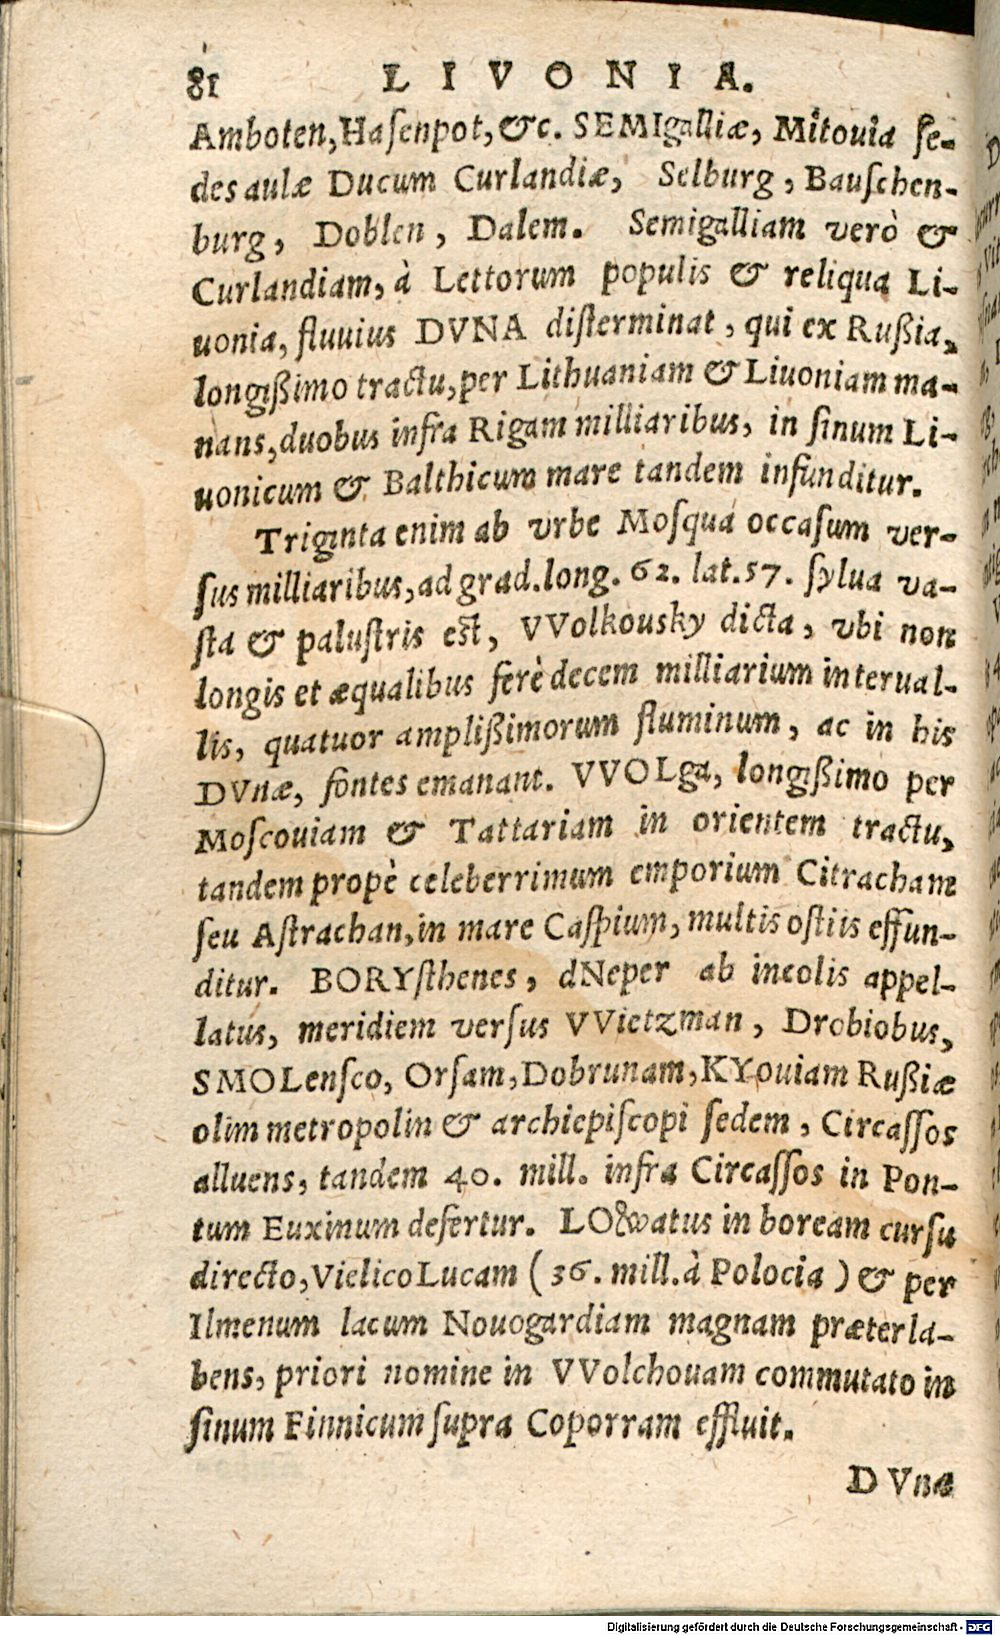 81 LIVONIA.
Amboten, Haſenpot, &c. SEMIgalliæ, Mitouia ſe-
des aulæ Ducum Curlandiæ, Selburg, Bauſchen-
burg, Doblen, Dalem. Semigalliam verò &
Curlandiam, à Lettorum populis & reliqua Li-
uonia, fluuius DVNA diſterminat, qui ex Rußia,
longißimo tractu, per Lithuaniam & Liuoniam ma-
nans, duobus infra Rigam milliaribus, in ſinum Li-
uonicum & Balthicum mare tandem infunditur.
Triginta enim ab vrbe Moſqua occaſum ver-
ſus milliaribus, ad grad. long. 62. lat. 57. ſylua va-
ſta & paluſtris eſt, VVolkousky dicta, vbi non
longis et æqualibus ferè decem milliarium interual-
lis, quatuor amplißimorum fluminum, ac in his
DVnæ, fontes emanant. VVOLga, longißimo per
Moſcouiam & Tattariam in orientem tractu,
tandem propè celeberrimum emporium Citracham
ſeu Aſtrachan, in mare Caſpium, multis oſtiis effun-
ditur. BORYſthenes, dNeper ab incolis appel-
latus, meridiem verſus VVietzman, Drobiobus,
SMOLenſco, Orſam, Dobrunam, KYouiam Rußiæ
olim metropolin & archiepiſcopi ſedem, Circaſſos
alluens, tandem 40. mill. infra Circaſſos in Pon-
tum Euxinum defertur. LOwatus in boream curſu
directo, Vielico Lucam (36. mill. à Polocia) & per
Ilmenum lacum Nouogardiam magnam præterla-
bens, priori nomine in VVolchouam commutato in
ſinum Finnicum ſupra Coporram effluit.
DVnæ
Digitalisierung gefördert durch die Deutsche Forschungsgemeinschaft - DFG